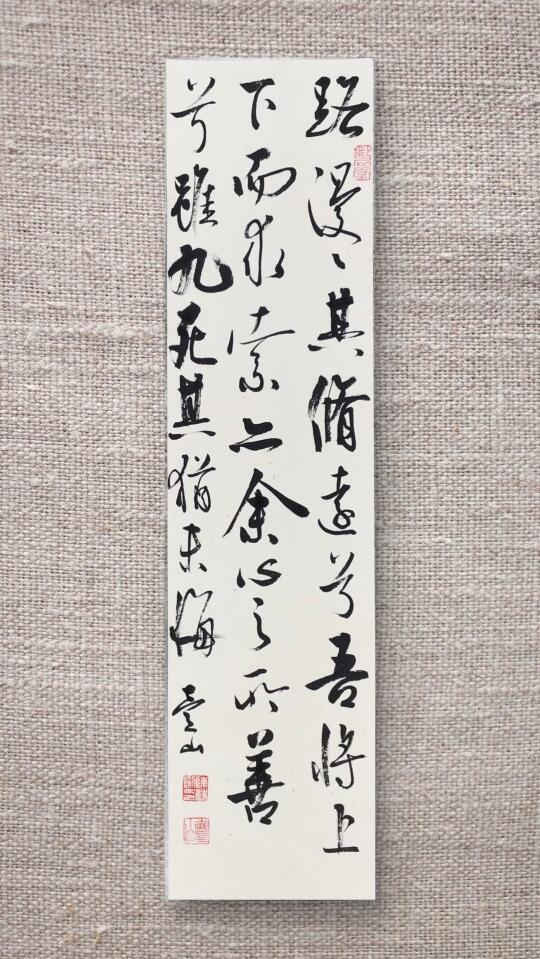 路漫〻其脩遠兮吾將上
下而求索亦余心之所善
兮雖九死其猶未悔
山